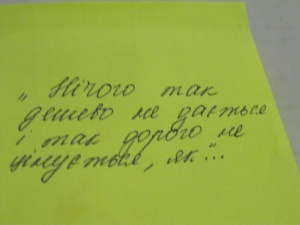 „Нічого так
дешево не дається
і так дорого не
цінується, як"...